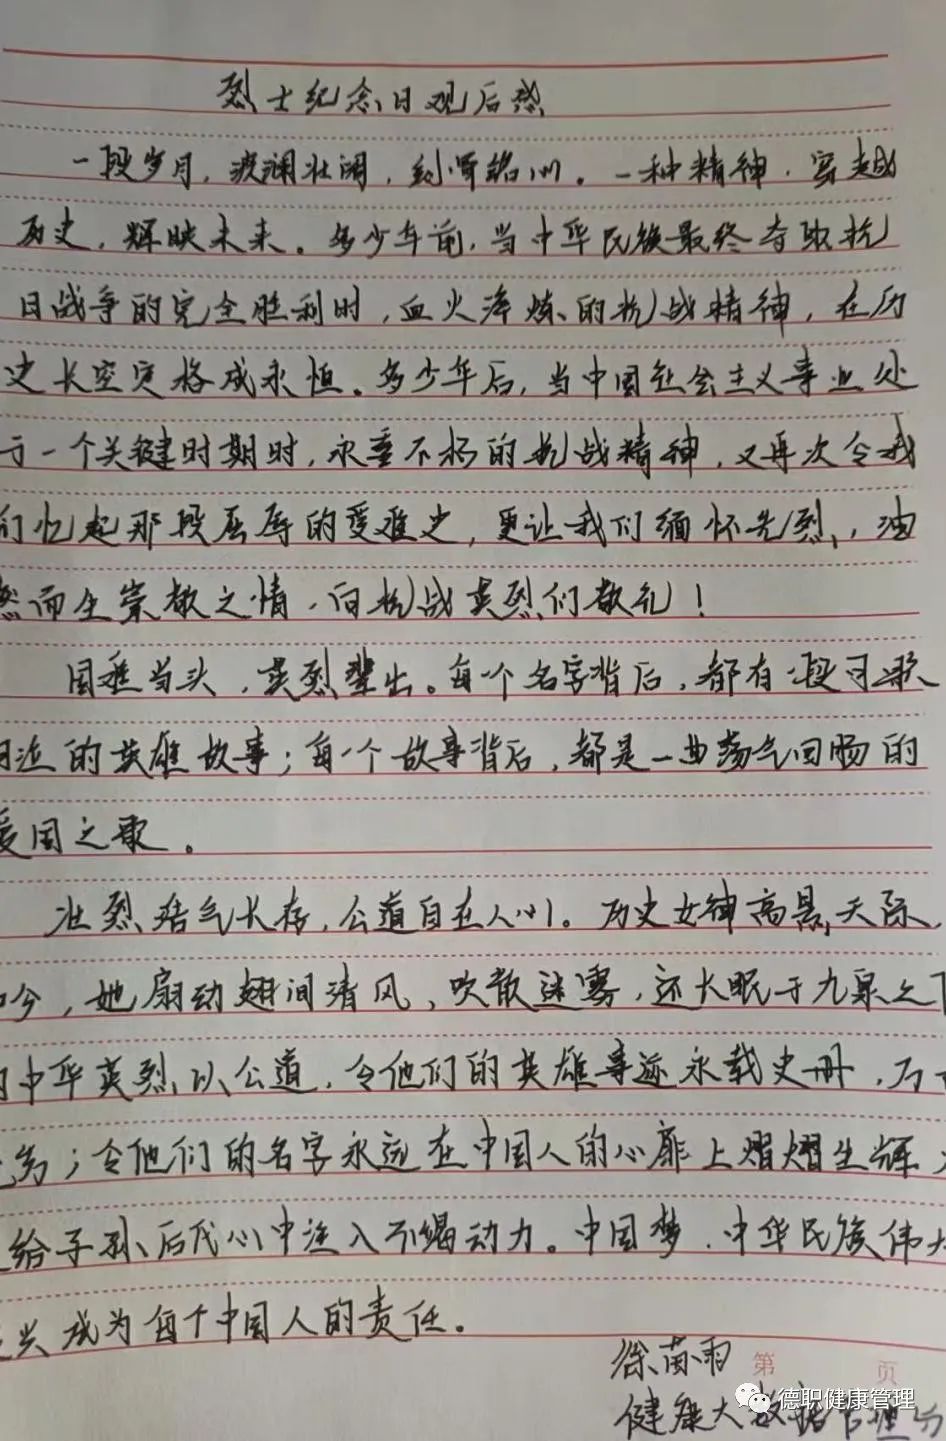 烈士纪念日观后感
一段岁月，波澜壮阔，刻骨铭心。一种精神，穿越
历史，辉映未来。多少年前，当中华民族最终夺取抗
日战争的完全胜利时，血火淬炼的抗战精神，在历
史长空定格成永恒。多少年后，当中国社会主义事业处
于一个关键时期时，永垂不朽的抗战精神，又再次令我
们忆起那段屈辱的受难史，更让我们缅怀先烈，油
然而生崇敬之情，向抗战英烈们敬礼！
国难当头，英烈辈出。每一个名字背后，都有一段可歌
的英雄故事；每一个故事背后，都是一曲荡气回肠的
爱国之歌。
壮烈浩气长存，公道自在人心。历史女神高悬天际，
如今，她扇动翅间清风，吹散迷雾，还长眠于九泉之下
的中华英烈以公道，令他们的英雄事迹永载史册，万
；令他们的名字永远在中国人的心扉上熠熠生辉，
给子孙后代心中注入不竭动力。中国梦，中华民族伟大
兴成为每个中国人的责任。
徐茵雨
第 页
健康大数据管理与
德职健康管理